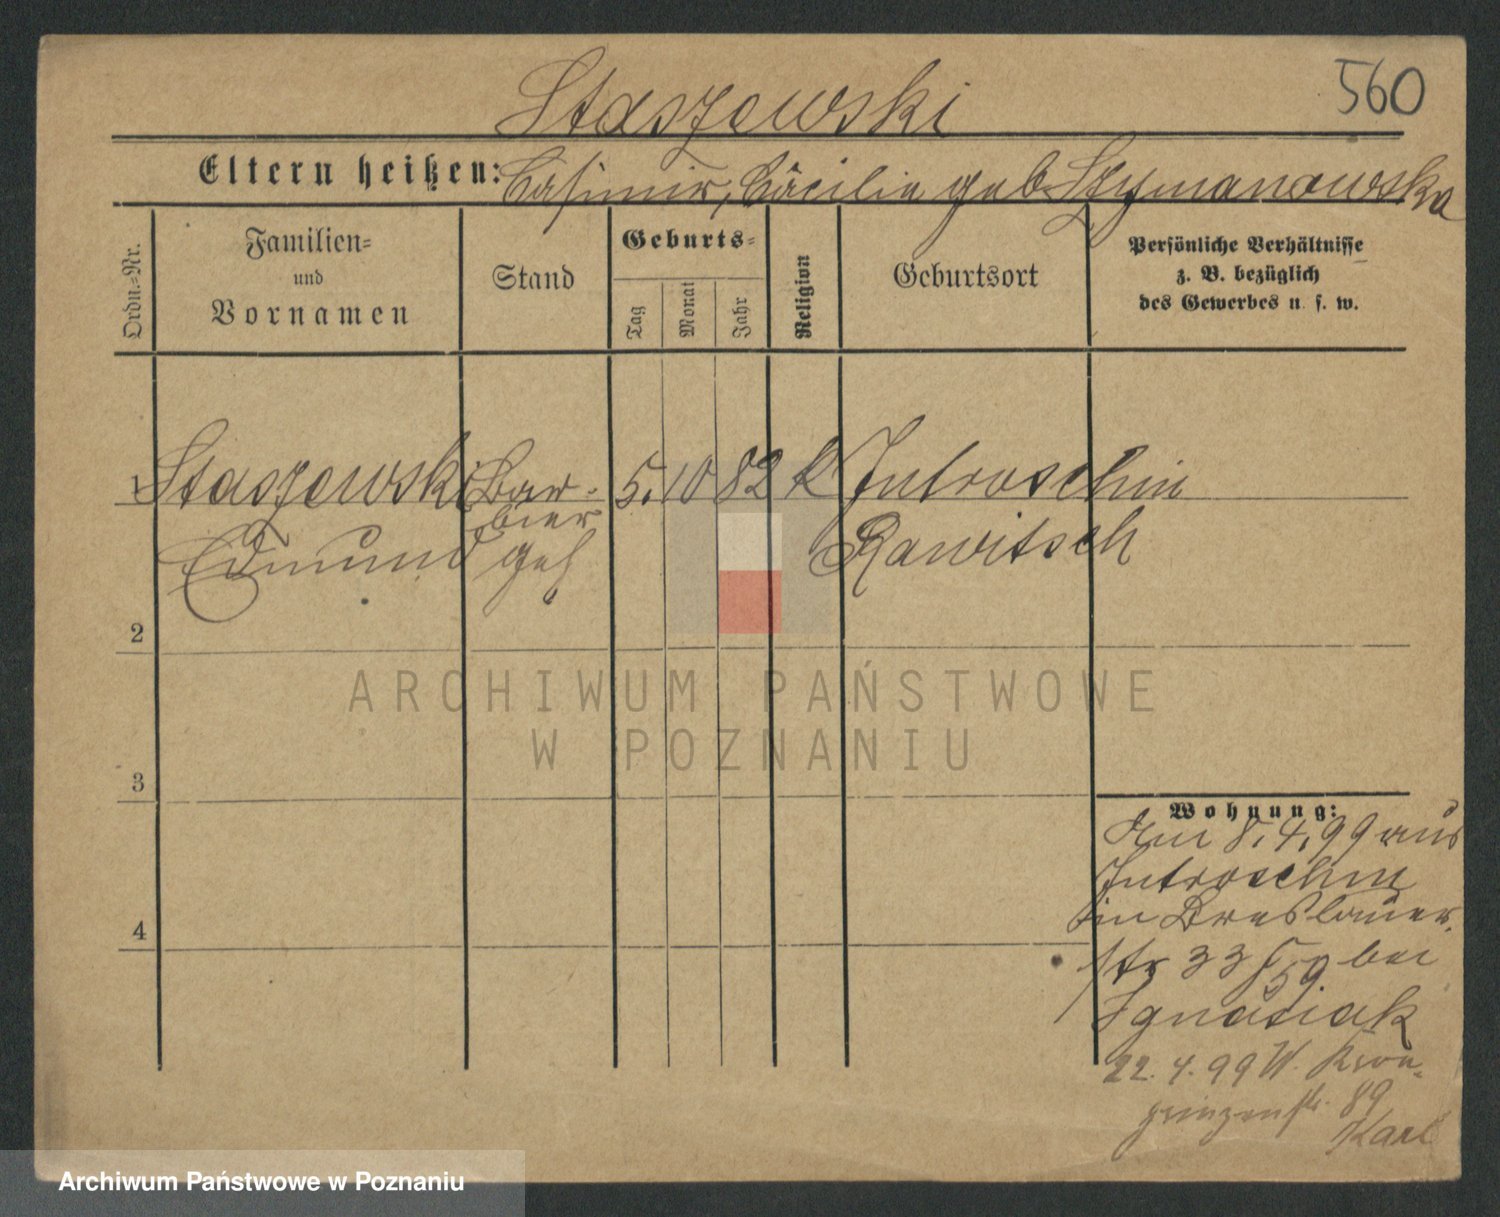 560
Staszewski
Eltern heißen: Casimir, Cäcilia geb. Szymanowska
Ordn.-Nr.
Familien-
und
Vornamen
Stand
Geburts-
Tag
Monat
Jahr
Religion
Geburtsort
Persönliche Verhältnisse
z. B. bezüglich
des Gewerbes u. s. w.
1 Staszewski Bar- 5. 10 82 k Jutroschin
bier
Edmund geh Rawitsch
2
ARCHIWUM PAŃSTWOWE
W POZNANIU
3
Wohnung:
Am 8.4.99 aus
Jutroschin
in Breslauer-
4
str 33 bei
Ignasiak
22.4.99 W. Kron-
prinzenstr. 89
Karl
Archiwum Państwowe w Poznaniu